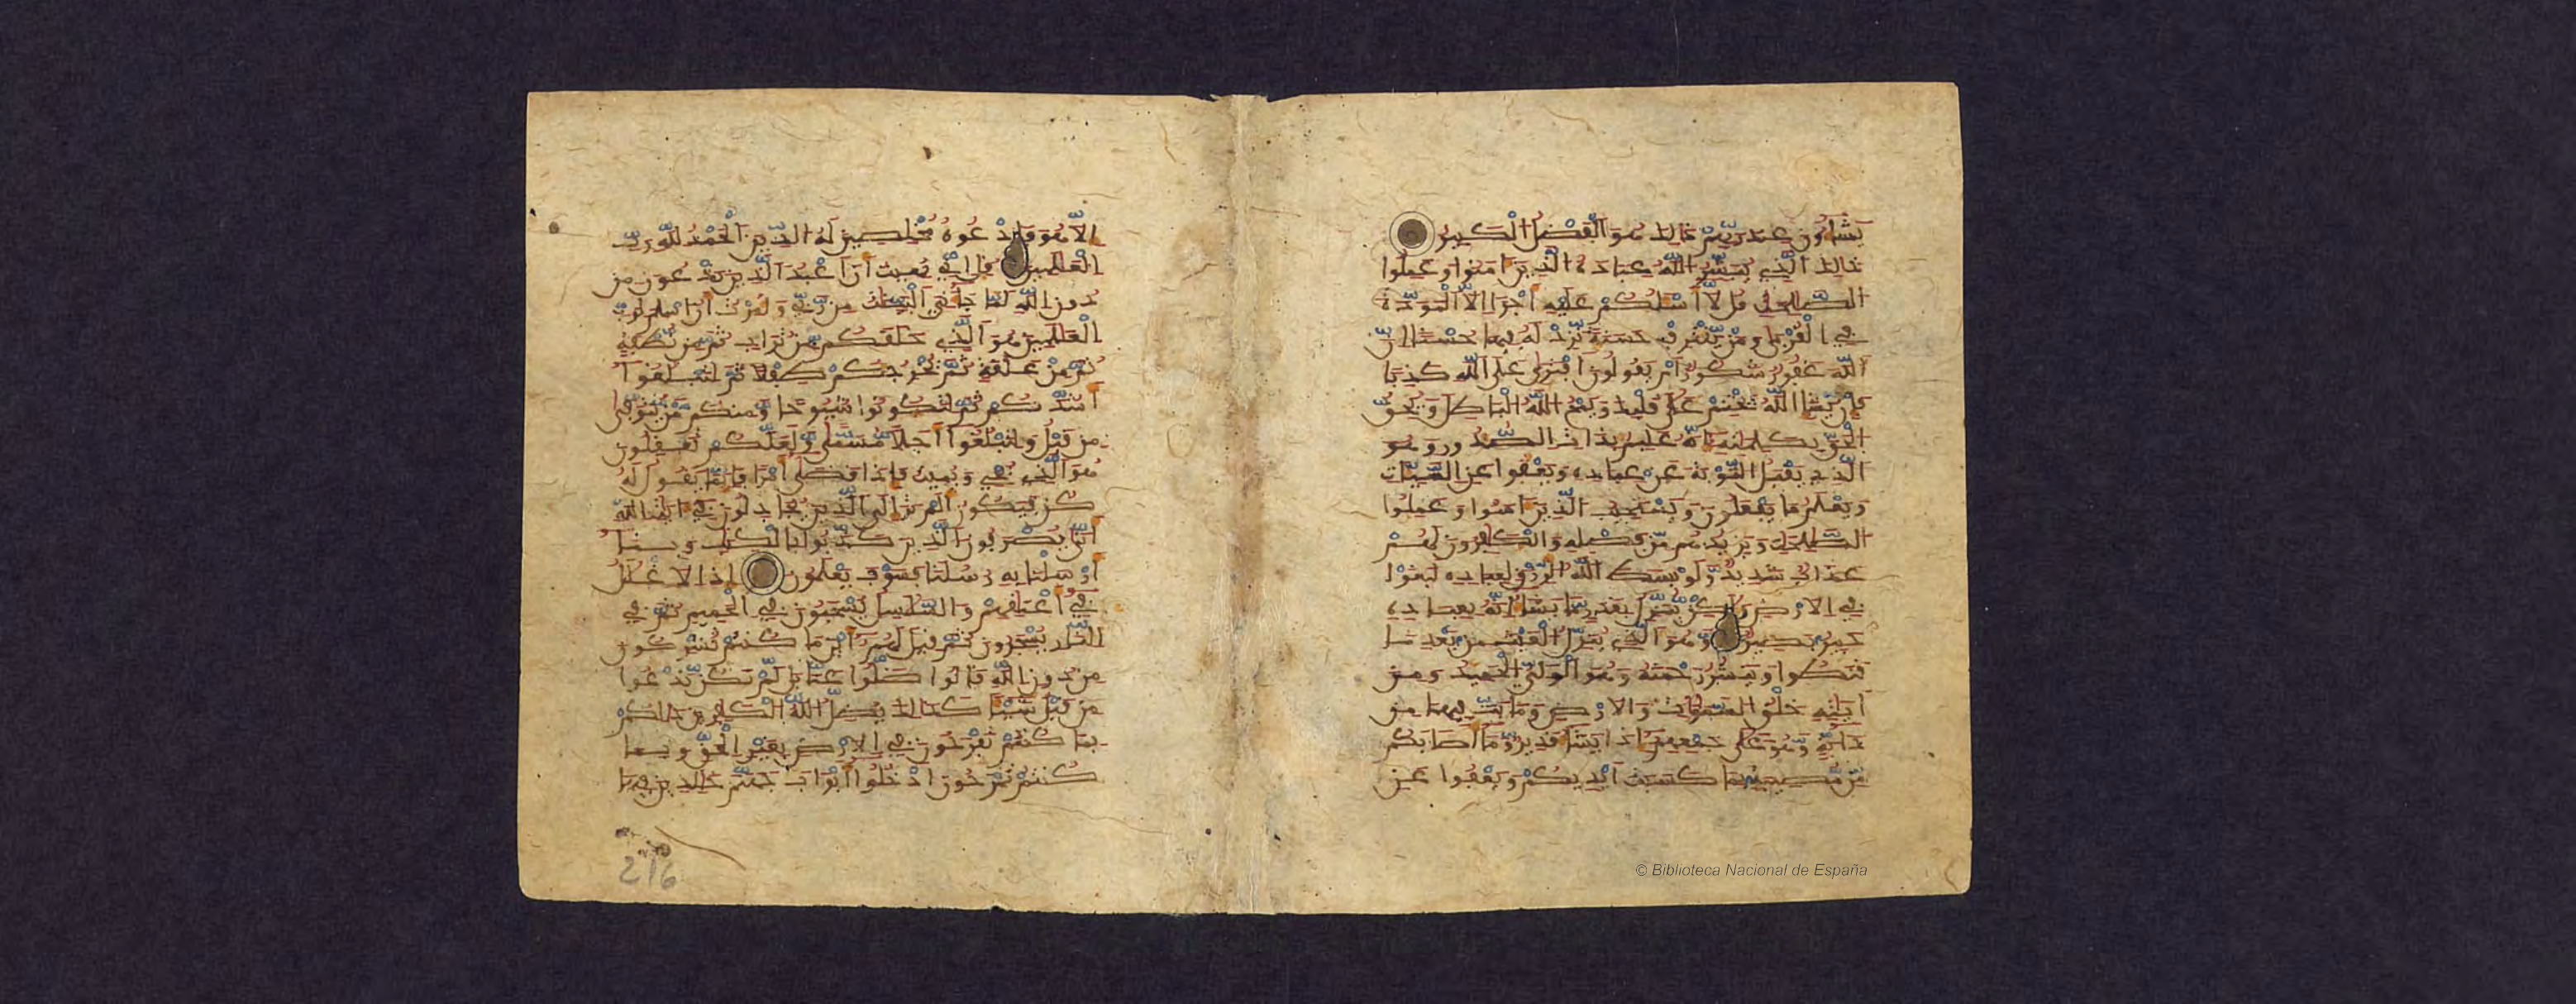 يَشَآءُونَ عِندَ رَبِّهِمْ ذَٰلِكَ هُوَ ٱلْفَضْلُ ٱلْكَبِيرُ
ذَٰلِكَ ٱلَّذِي يُبَشِّرُ ٱللَّهُ عِبَادَهُ ٱلَّذِينَ ءَامَنُوا وَعَمِلُوا
ٱلصَّٰلِحَٰتِ قُل لَّآ أَسْـَٔلُكُمْ عَلَيْهِ أَجْرًا إِلَّا ٱلْمَوَدَّةَ
فِي ٱلْقُرْبَىٰ وَمَنْ يَّقْتَرِفْ حَسَنَةً نَّزِدْ لَهُ فِيهَا حُسْنًا إِنَّ
ٱللَّهَ غَفُورٌ شَكُورٌ أَمْ يَقُولُونَ ٱفْتَرَىٰ عَلَى ٱللَّهِ كَذِبًا
فَإِنْ يَّشَإِ ٱللَّهُ يَخْتِمْ عَلَىٰ قَلْبِكَ وَيَمْحُ ٱللَّهُ ٱلْبَٰطِلَ وَيُحِقُّ
ٱلْحَقَّ بِكَلِمَٰتِهِ إِنَّهُ عَلِيمٌ بِذَاتِ ٱلصُّدُورِ وَهُوَ
ٱلَّذِي يَقْبَلُ ٱلتَّوْبَةَ عَنْ عِبَادِهِ وَيَعْفُوا عَنِ ٱلسَّيِّـَٔاتِ
وَيَعْلَمُ مَا يَفْعَلُونَ وَيَسْتَجِيبُ ٱلَّذِينَ ءَامَنُوا وَعَمِلُوا
ٱلصَّٰلِحَٰتِ وَيَزِيدُهُم مِّن فَضْلِهِ وَٱلْكَٰفِرُونَ لَهُمْ
عَذَابٌ شَدِيدٌ وَّلَوْ بَسَطَ ٱللَّهُ ٱلرِّزْقَ لِعِبَادِهِ لَبَغَوْا
فِي ٱلْأَرْضِ وَلَٰكِنْ يُّنَزِّلُ بِقَدَرٍ مَّا يَشَآءُ إِنَّهُ بِعِبَادِهِ
خَبِيرٌ بَصِيرٌ وَّهُوَ ٱلَّذِي يُنَزِّلُ ٱلْغَيْثَ مِن بَعْدِ مَا
قَنَطُوا وَيَنشُرُ رَحْمَتَهُ وَهُوَ ٱلْوَلِيُّ ٱلْحَمِيدُ وَمِنْ
ءَايَٰتِهِ خَلْقُ ٱلسَّمَٰوَٰتِ وَٱلْأَرْضِ وَمَا بَثَّ فِيهِمَا مِن
دَآبَّةٍ وَّهُوَ عَلَىٰ جَمْعِهِمْ إِذَا يَشَآءُ قَدِيرٌ وَّمَآ أَصَٰبَكُم
مِّن مُّصِيبَةٍ بِمَا كَسَبَتْ أَيْدِيكُمْ وَيَعْفُوا عَن
إِلَّا هُوَ فَٱدْعُوهُ مُخْلِصِينَ لَهُ ٱلدِّينَ ٱلْحَمْدُ لِلَّهِ رَبِّ
ٱلْعَٰلَمِينَ قُلْ إِنِّي نُهِيتُ أَنْ أَعْبُدَ ٱلَّذِينَ تَدْعُونَ مِن
دُونِ ٱللَّهِ لَمَّا جَآءَنِيَ ٱلْبَيِّنَٰتُ مِن رَّبِّي وَأُمِرْتُ أَنْ أُسْلِمَ لِرَبِّ
ٱلْعَٰلَمِينَ هُوَ ٱلَّذِي خَلَقَكُم مِّن تُرَابٍ ثُمَّ مِن نُّطْفَةٍ
ثُمَّ مِنْ عَلَقَةٍ ثُمَّ يُخْرِجُكُمْ طِفْلًا ثُمَّ لِتَبْلُغُوا
أَشُدَّكُمْ ثُمَّ لِتَكُونُوا شُيُوخًا وَّمِنكُم مَّنْ يُّتَوَفَّىٰ
مِن قَبْلُ وَلِتَبْلُغُوا أَجَلًا مُّسَمًّى وَّلَعَلَّكُمْ تَعْقِلُونَ
هُوَ ٱلَّذِي يُحْيِي وَيُمِيتُ فَإِذَا قَضَىٰ أَمْرًا فَإِنَّمَا يَقُولُ لَهُ
كُن فَيَكُونُ أَلَمْ تَرَ إِلَى ٱلَّذِينَ يُجَٰدِلُونَ فِي ءَايَٰتِ ٱللَّهِ
أَنَّىٰ يُصْرَفُونَ ٱلَّذِينَ كَذَّبُوا بِٱلْكِتَٰبِ وَبِمَآ
أَرْسَلْنَا بِهِ رُسُلَنَا فَسَوْفَ يَعْلَمُونَ إِذِ ٱلْأَغْلَٰلُ
فِي أَعْنَٰقِهِمْ وَٱلسَّلَٰسِلُ يُسْحَبُونَ فِي ٱلْحَمِيمِ ثُمَّ فِي
ٱلنَّارِ يُسْجَرُونَ ثُمَّ قِيلَ لَهُمْ أَيْنَ مَا كُنتُمْ تُشْرِكُونَ
مِن دُونِ ٱللَّهِ قَالُوا ضَلُّوا عَنَّا بَل لَّمْ نَكُن نَّدْعُوا
مِن قَبْلُ شَيْـًٔا كَذَٰلِكَ يُضِلُّ ٱللَّهُ ٱلْكَٰفِرِينَ ذَٰلِكُم
بِمَا كُنتُمْ تَفْرَحُونَ فِي ٱلْأَرْضِ بِغَيْرِ ٱلْحَقِّ وَبِمَا
كُنتُمْ تَمْرَحُونَ ٱدْخُلُوا أَبْوَٰبَ جَهَنَّمَ خَٰلِدِينَ فِيهَا
216
© Biblioteca Nacional de España